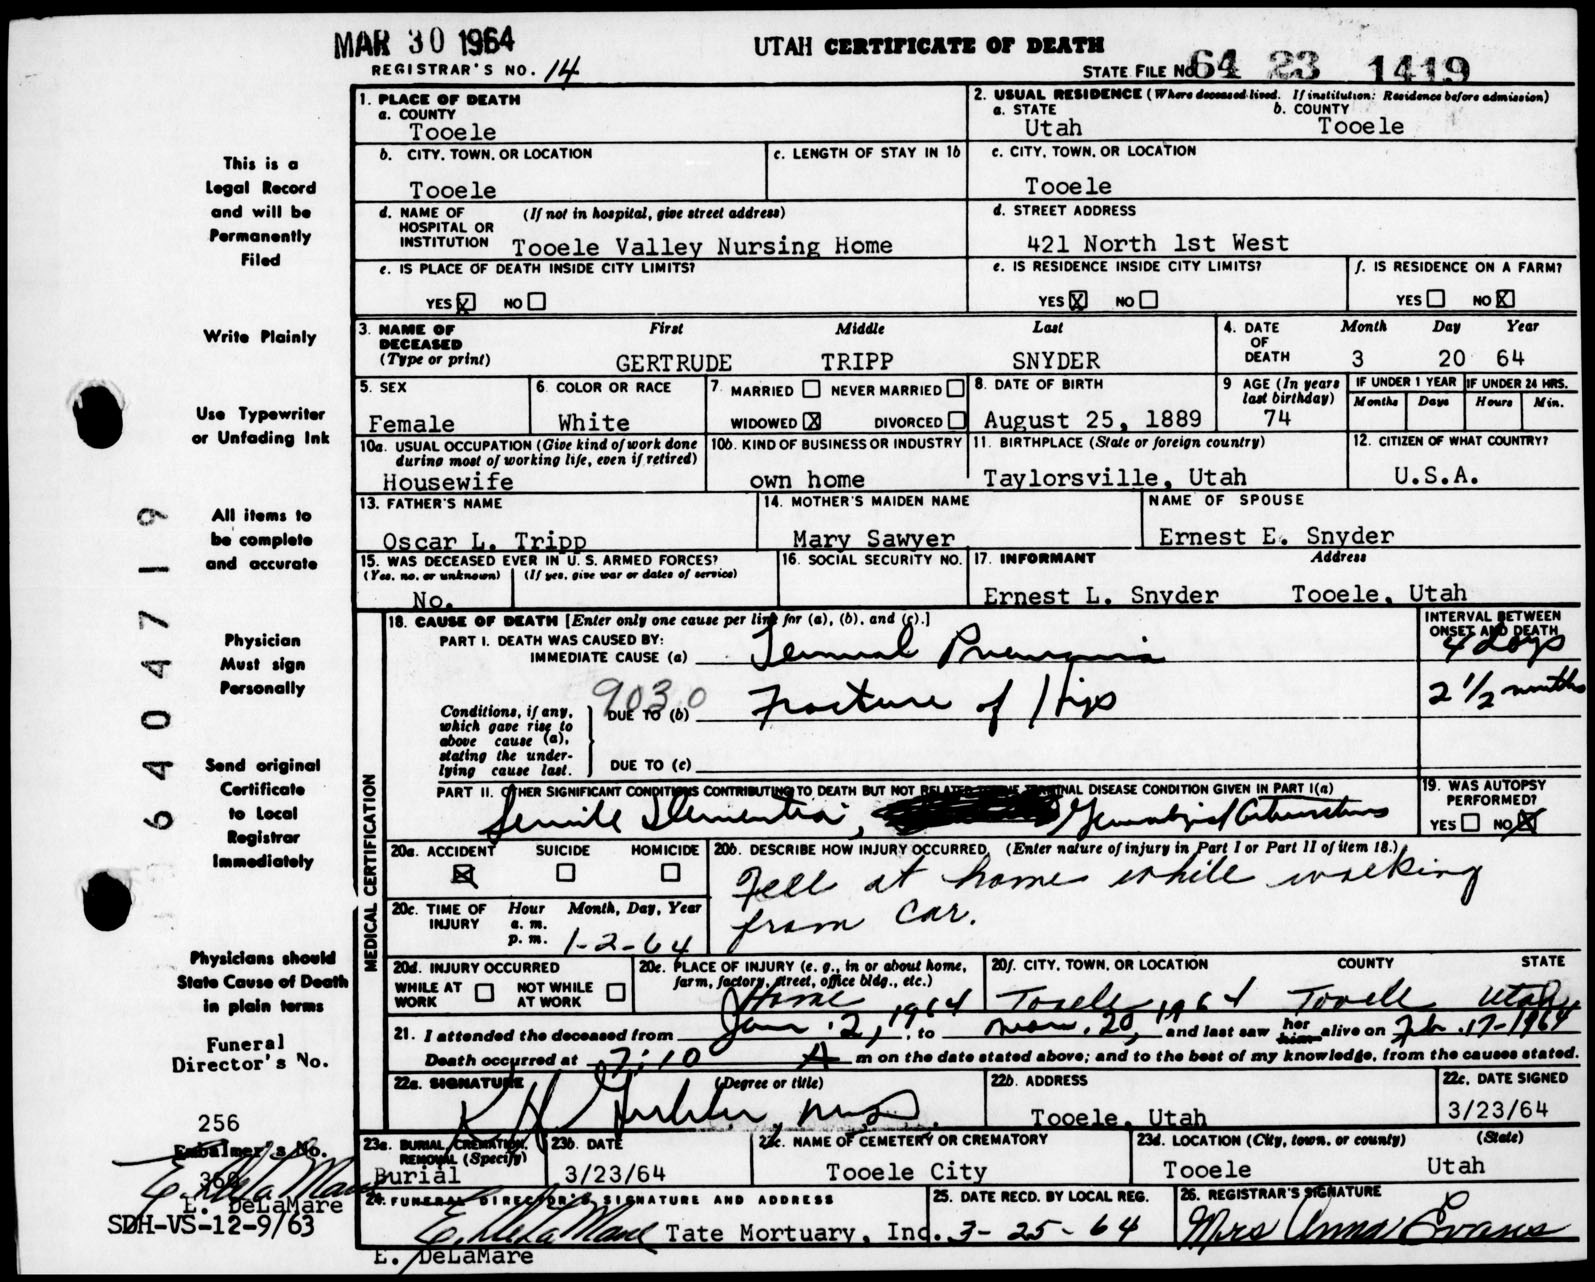 MAR 30 1964
UTAH CERTIFICATE OF DEATH
REGISTRAR'S NO. 14
STATE FILE NO. 64 23 1419
This is a
Legal Record
and will be
Permanently
Filed
Write Plainly
Use Typewriter
or Unfading Ink
All items to
be complete
and accurate
Physician
Must sign
Personally
Send original
Certificate
to Local
Registrar
Immediately
Physicians should
State Cause of Death
in plain terms
Funeral
Director's No.
256
Embalmer's No.
360
E. DeLaMare
E. DeLaMare
SDH-VS-12-9/63
64047 19
1. PLACE OF DEATH
a. COUNTY
Tooele
2. USUAL RESIDENCE (Where deceased lived. If institution: Residence before admission)
a. STATE b. COUNTY
Utah Tooele
b. CITY, TOWN, OR LOCATION
Tooele
c. LENGTH OF STAY IN 1b
c. CITY, TOWN, OR LOCATION
Tooele
d. NAME OF (If not in hospital, give street address)
HOSPITAL OR
INSTITUTION Tooele Valley Nursing Home
d. STREET ADDRESS
421 North 1st West
e. IS PLACE OF DEATH INSIDE CITY LIMITS?
YES X NO
e. IS RESIDENCE INSIDE CITY LIMITS?
YES X NO
f. IS RESIDENCE ON A FARM?
YES NO X
3. NAME OF First Middle Last
DECEASED
(Type or print) GERTRUDE TRIPP SNYDER
4. DATE Month Day Year
OF
DEATH 3 20 64
5. SEX
Female
6. COLOR OR RACE
White
7. MARRIED NEVER MARRIED
WIDOWED X DIVORCED
8. DATE OF BIRTH
August 25, 1889
9 AGE (In years
last birthday)
74
IF UNDER 1 YEAR IF UNDER 24 HRS.
Months Days Hours Min.
10a. USUAL OCCUPATION (Give kind of work done
during most of working life, even if retired)
Housewife
10b. KIND OF BUSINESS OR INDUSTRY
own home
11. BIRTHPLACE (State or foreign country)
Taylorsville, Utah
12. CITIZEN OF WHAT COUNTRY?
U.S.A.
13. FATHER'S NAME
Oscar L. Tripp
14. MOTHER'S MAIDEN NAME
Mary Sawyer
NAME OF SPOUSE
Ernest E. Snyder
15. WAS DECEASED EVER IN U.S. ARMED FORCES?
(Yes, no, or unknown) (If yes, give war or dates of service)
No.
16. SOCIAL SECURITY NO.
17. INFORMANT Address
Ernest L. Snyder Tooele, Utah
MEDICAL CERTIFICATION
18. CAUSE OF DEATH [Enter only one cause per line for (a), (b), and (c).]
INTERVAL BETWEEN
ONSET AND DEATH
PART I. DEATH WAS CAUSED BY:
IMMEDIATE CAUSE (a) Terminal Pneumonia 4 days
9030
Conditions, if any,
which gave rise to
above cause (a),
stating the under-
lying cause last.
DUE TO (b) Fracture of Hips 2 1/2 months
DUE TO (c)
PART II. OTHER SIGNIFICANT CONDITIONS CONTRIBUTING TO DEATH BUT NOT RELATED TO THE TERMINAL DISEASE CONDITION GIVEN IN PART I(a)
Senile Dementia, Generalized
19. WAS AUTOPSY
PERFORMED?
YES NO X
20a. ACCIDENT SUICIDE HOMICIDE
X
20b. DESCRIBE HOW INJURY OCCURRED. (Enter nature of injury in Part I or Part II of item 18.)
Fell at home while walking
from car.
20c. TIME OF Hour Month, Day, Year
INJURY a. m.
p. m. 1-2-64
20d. INJURY OCCURRED
WHILE AT NOT WHILE
WORK AT WORK
20e. PLACE OF INJURY (e. g., in or about home,
farm, factory, street, office bldg., etc.)
Home
20f. CITY, TOWN, OR LOCATION COUNTY STATE
Tooele Tooele Utah
21. I attended the deceased from Jan. 2, 1964, to Mar. 20, 1964 and last saw her him alive on Feb. 17-1964
Death occurred at 7:10 A m on the date stated above; and to the best of my knowledge, from the causes stated.
22a. SIGNATURE (Degree or title)
22b. ADDRESS
Tooele, Utah
22c. DATE SIGNED
3/23/64
23a. BURIAL, CREMATION,
REMOVAL (Specify)
Burial
23b. DATE
3/23/64
23c. NAME OF CEMETERY OR CREMATORY
Tooele City
23d. LOCATION (City, town, or county) (State)
Tooele Utah
24. FUNERAL DIRECTOR'S SIGNATURE AND ADDRESS
E. DeLaMare Tate Mortuary, Inc.
E. DeLaMare
25. DATE RECD. BY LOCAL REG.
3-25-64
26. REGISTRAR'S SIGNATURE
Mrs Anna Evans